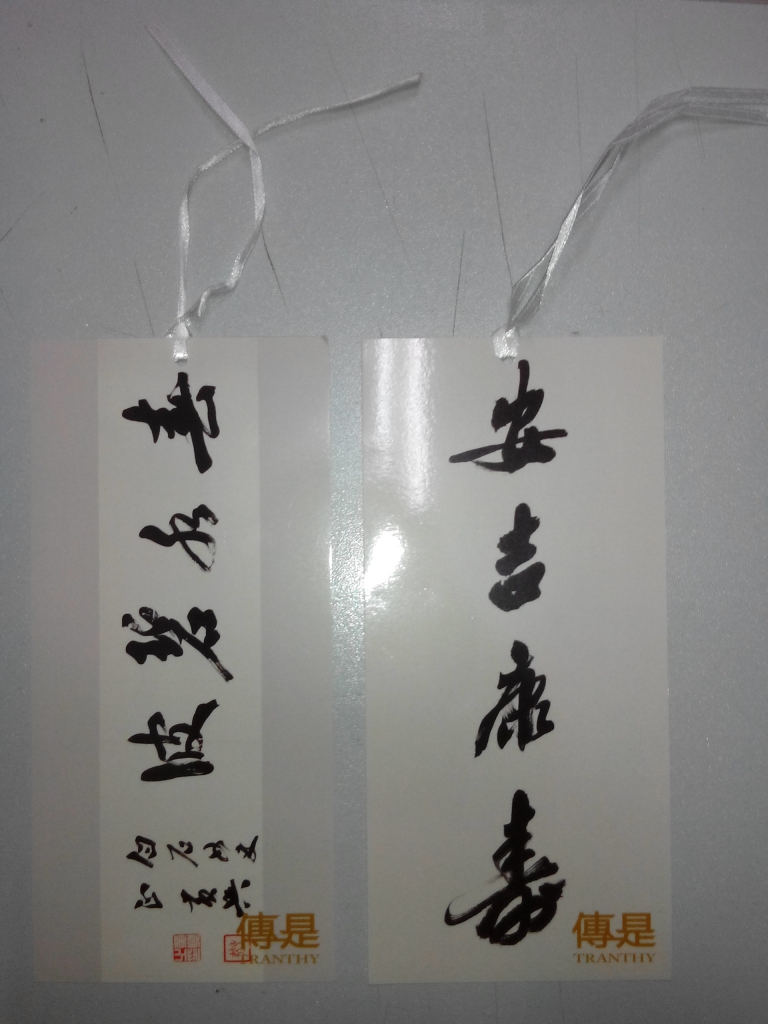 春水碧波
傳是
TRANTHY
安吉康壽
傳是
TRANTHY